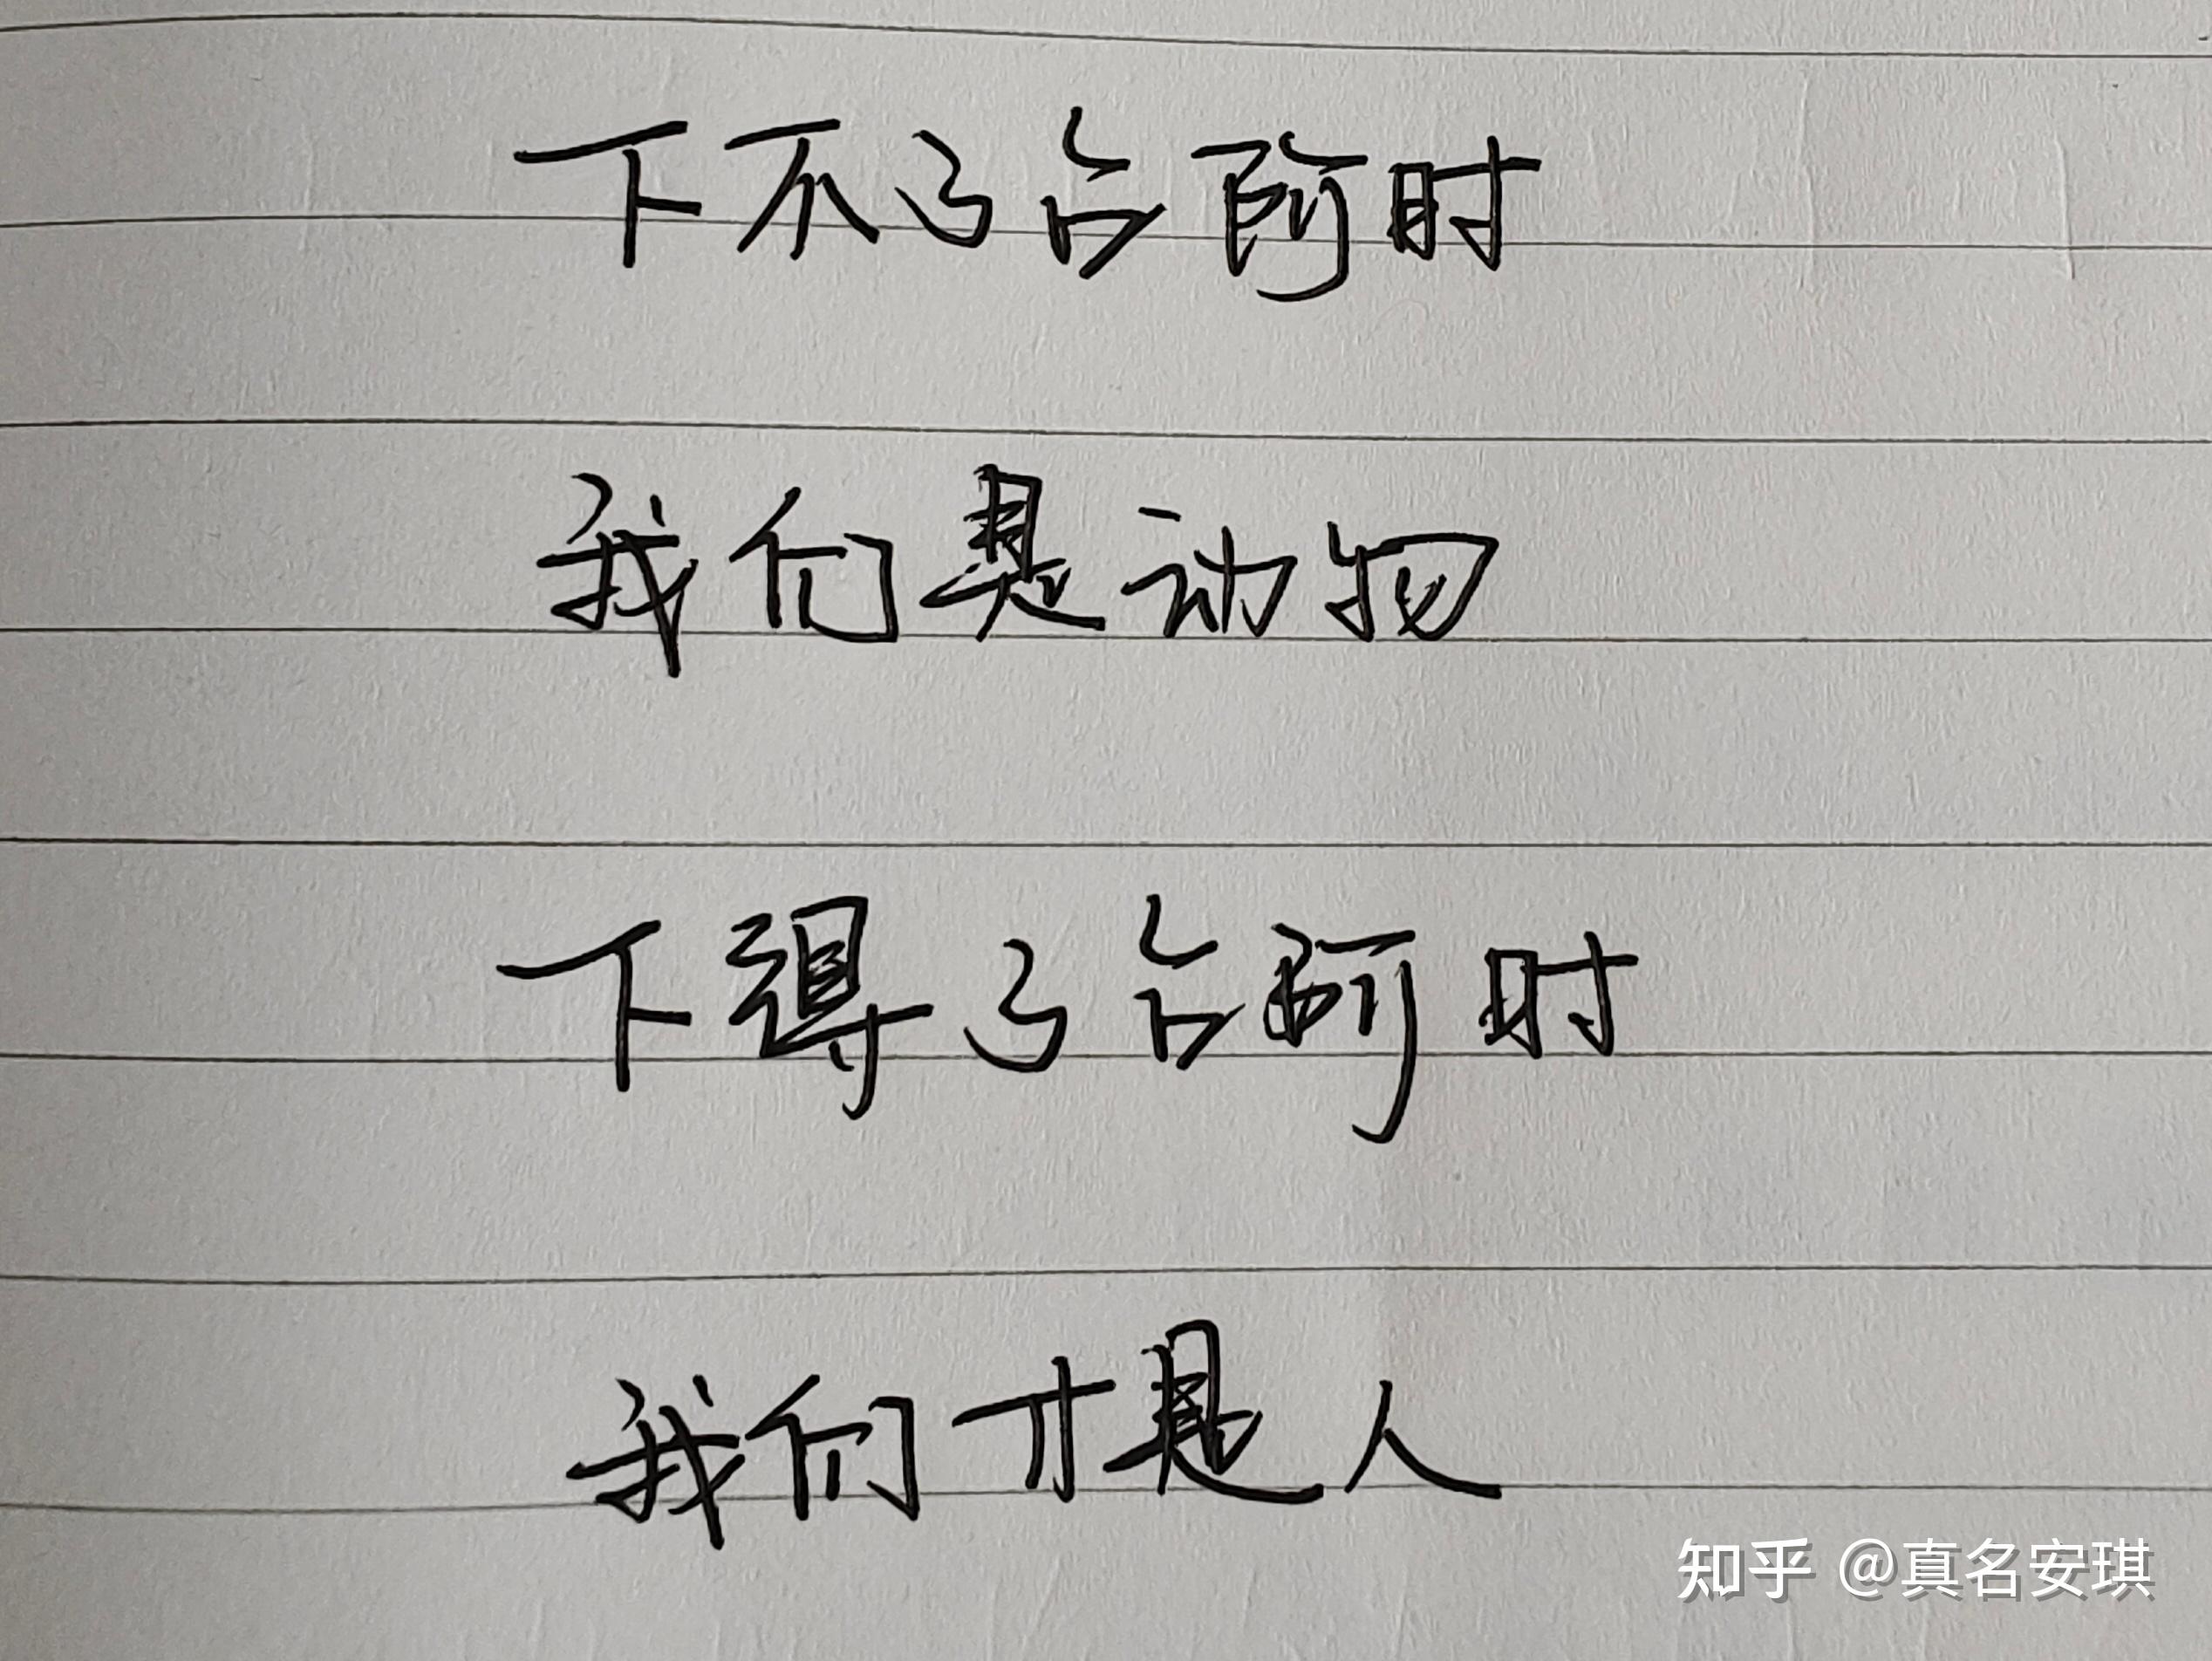 下不了台阶时
我们是动物
下得了台阶时
我们才是人
知乎 @真名安琪